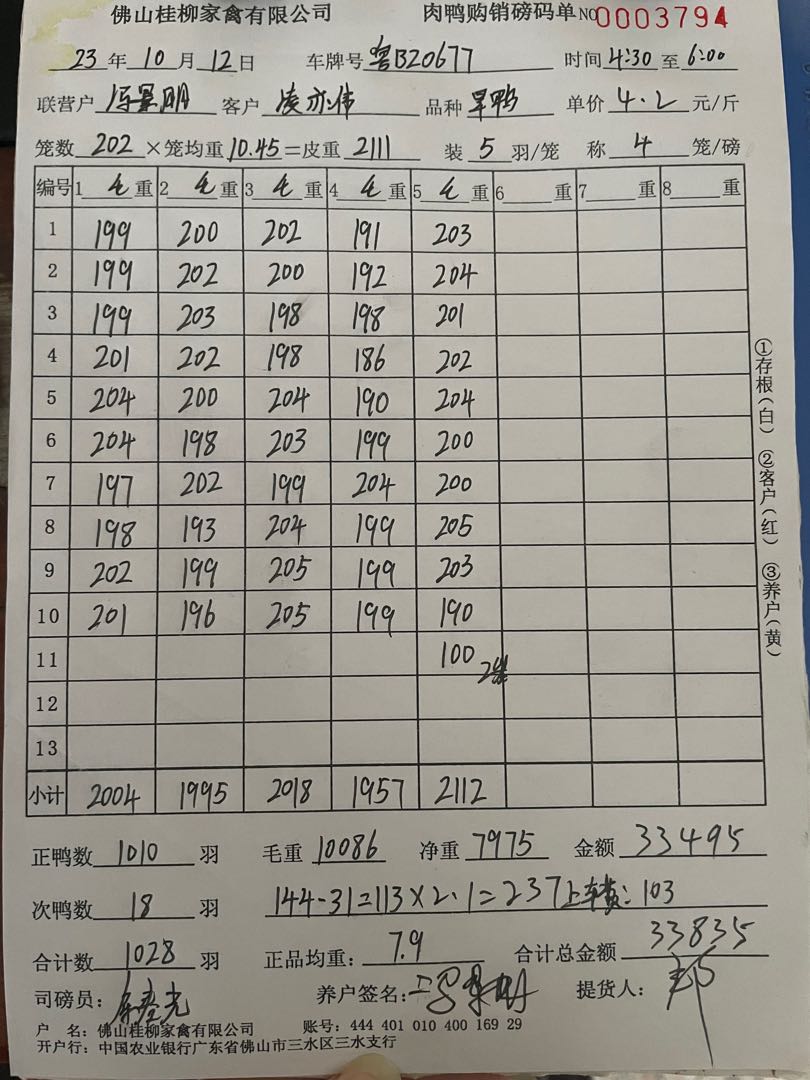 佛山桂柳家禽有限公司 肉鸭购销磅码单 NO 0003794
23 年 10 月 12 日 车牌号 粤B20677 时间 4:30 至 6:00
联营户 冯景明 客户 凌亦伟 品种 旱鸭 单价 4.2 元/斤
笼数 202 ×笼均重 10.45 =皮重 2111 装 5 羽/笼 称 4 笼/磅
编号 1 毛 重 2 毛 重 3 毛 重 4 毛 重 5 毛 重 6 重 7 重 8 重
1 199 200 202 191 203
2 199 202 200 192 204
3 199 203 198 198 201
4 201 202 198 186 202
5 204 200 204 190 204
6 204 198 203 199 200
7 197 202 199 204 200
8 198 193 204 199 205
9 202 199 205 199 203
10 201 196 205 199 190
11 100 2笼
12
13
小计 2004 1995 2018 1957 2112
正鸭数 1010 羽 毛重 10086 净重 7975 金额 33495
次鸭数 18 羽 144-31=113×2.1=237 上车费: 103
合计数 1028 羽 正品均重: 7.9 合计总金额 33835
司磅员: 养户签名: 冯景明 提货人:
户 名: 佛山桂柳家禽有限公司 账号: 444 401 010 400 169 29
开户行: 中国农业银行广东省佛山市三水区三水支行
①存根(白) ②客户(红) ③养户(黄)